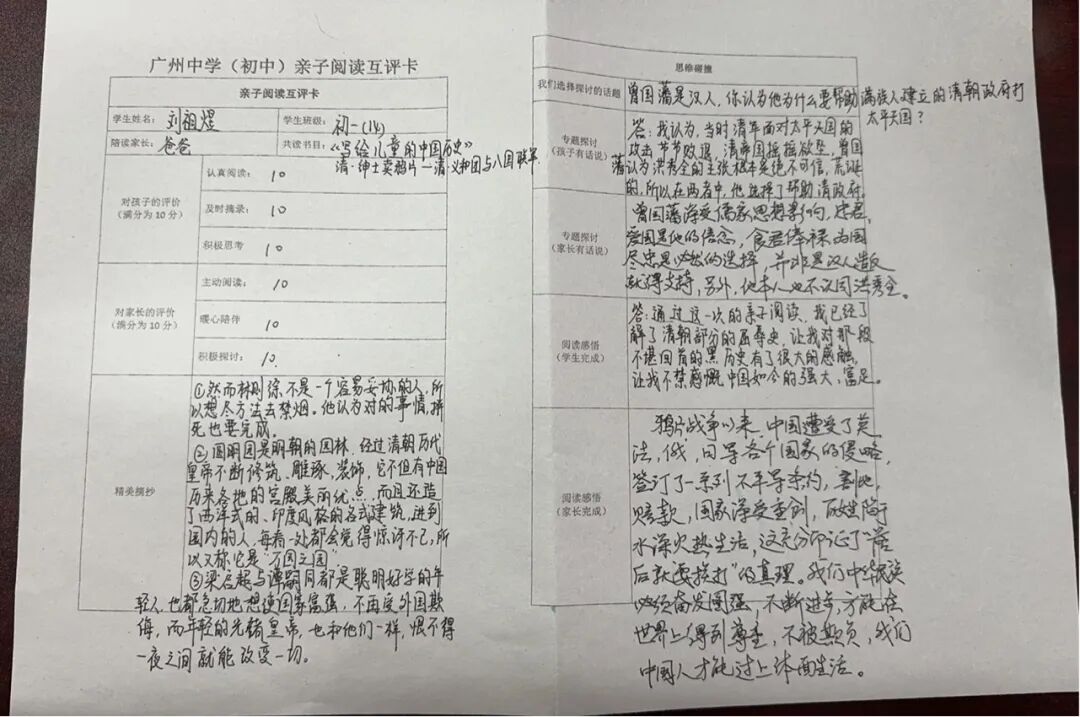 广州中学（初中）亲子阅读互评卡
亲子阅读互评卡
学生姓名：刘祖煜
学生班级：初一(14)
陪读家长：爸爸
共读书目：《写给儿童的中国历史》
清·绅士卖鸦片—清·义和团与八国联军
对孩子的评价
（满分为10分）
认真阅读：10
及时摘录：10
积极思考：10
对家长的评价
（满分为10分）
主动阅读：10
暖心陪伴：10
积极探讨：10.
精美摘抄
①然而林则徐不是一个容易妥协的人，所
以想尽方法去禁烟。他认为对的事情，拼
死也要完成。
②圆明园是明朝的园林，经过清朝历代
皇帝不断修筑、雕琢、装饰，它不但有中国
历来各地的宫殿美丽优点，而且还造
了西洋式的、印度风格的各式建筑，进到
国内的人，每看一处都会觉得惊讶不已，所
以又称它是“万园之园”
③梁启超与谭嗣同都是聪明好学的年
轻人，也都急切地想使国家富强，不再受外国欺
侮，而年轻的光绪皇帝，也和他们一样，恨不得
一夜之间就能改变一切。
思维碰撞
我们选择探讨的话题
曾国藩是汉人，你认为他为什么要帮助满族人建立的清朝政府打
太平天国？
专题探讨
（孩子有话说）
答：我认为，当时清军面对太平天国的
攻击节节败退，清帝国摇摇欲坠，曾国
藩认为洪秀全的主张根本是绝不可信，荒诞
的，所以在两者中，他选择了帮助清政府。
专题探讨
（家长有话说）
曾国藩深受儒家思想影响，忠君、
爱国是他的信念，食君俸禄为国
尽忠是必然的选择，并非是汉人造反
就得支持，另外，他本人也不认同洪秀全。
阅读感悟
（学生完成）
答：通过这一次的亲子阅读，我已经了
解了清朝部分的屈辱史，让我对那段
不堪回首的黑历史有了很大的感触，
让我不禁感慨中国如今的强大，富足。
阅读感悟
（家长完成）
鸦片战争以来，中国遭受了英
法，俄，日等各个国家的侵略，
签订了一系列不平等条约，割地，
赔款，国家深受宰割，百姓陷于
水深火热生活，这充分印证了“落
后就要挨打”的真理。我们中华民族
必须奋发图强，不断进步，方能在
世界上得到尊重，不被欺负，我们
中国人才能过上体面生活。